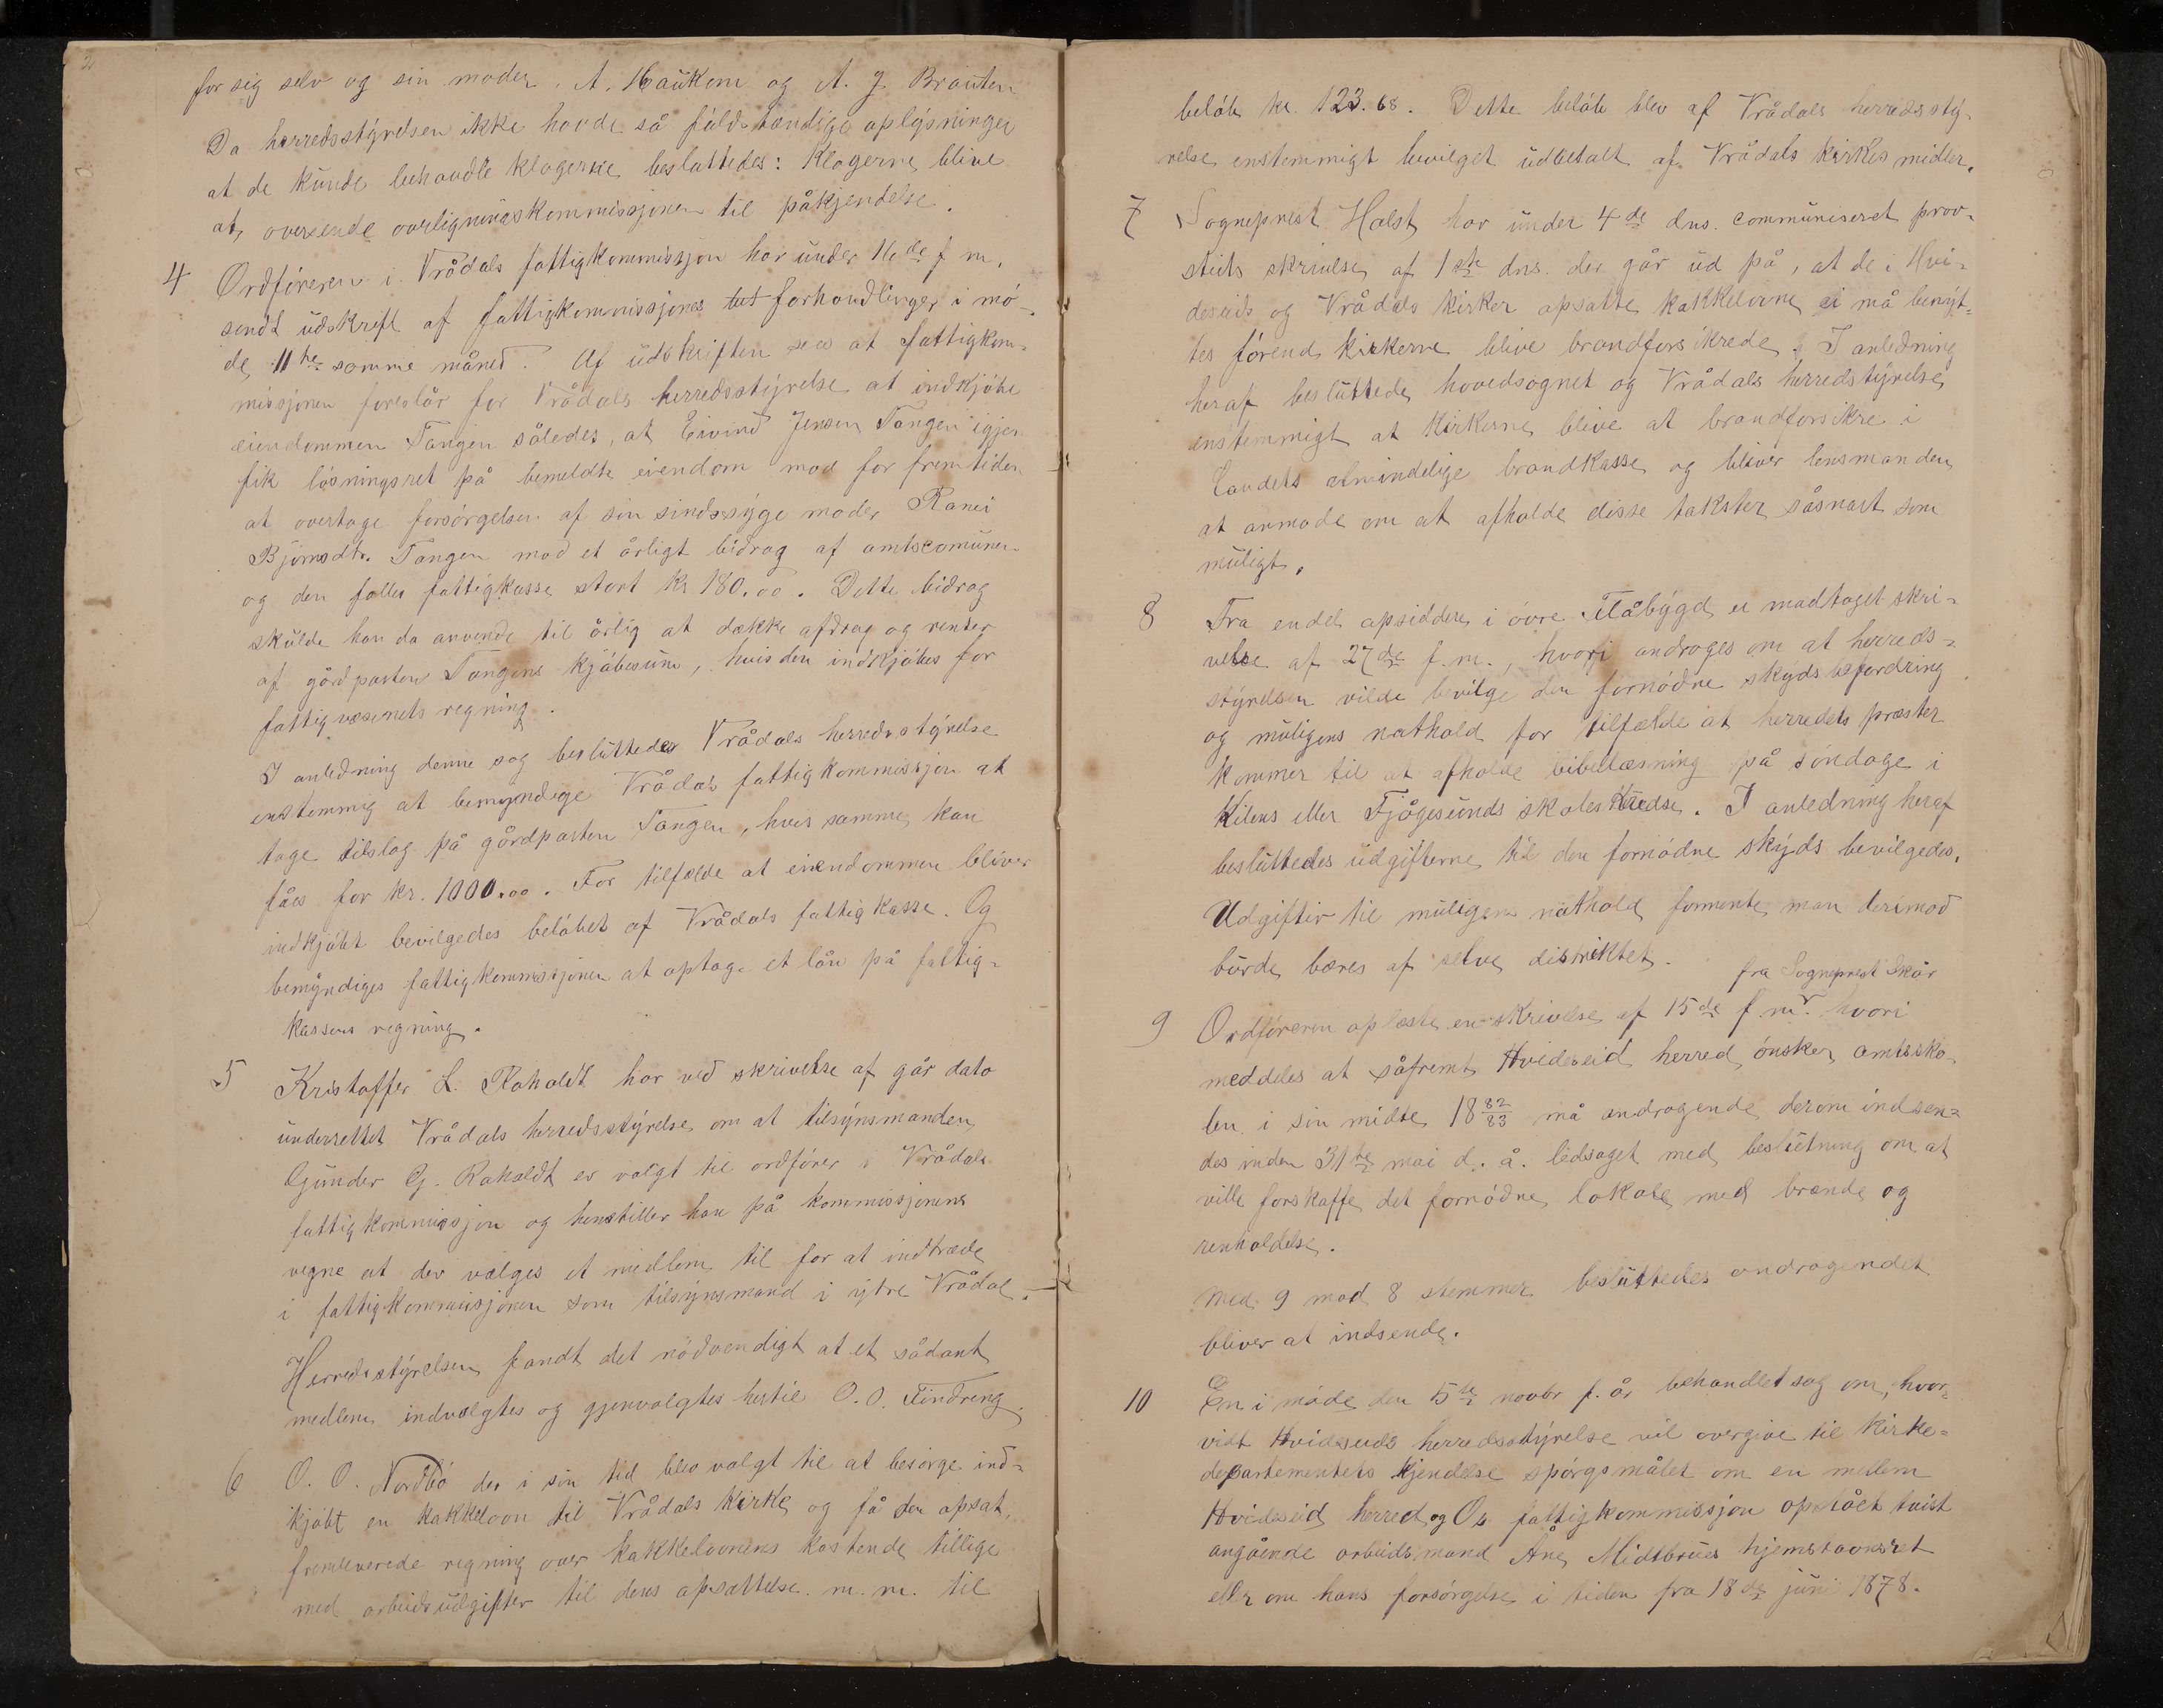 for sig selv og sin moder, A. Haukom og A. J. Brauten
Da herredsstyrelsen ikke havde så fuldstændige oplysninger
at de kunde behandle klagerne besluttedes: Klagerne blive
at oversende overligningskommissjonen til påkjendelse.
4 Ordføreren i Vrådals fattigkommissjon har under 16de f m.
sendt udskrift af fattigkommissjones forhandlinger i mø-
de 11te samme måned. Af udskriften sees at fattigkom-
missjonen foreslår for Vrådals herredsstyrelse at indkjøbe
eiendommen Tangen således, at Eivind Jensen Tangen igjen
fik løsningsret på bemeldte eiendom mod for fremtiden
at overtage forsørgelsen af sin sindssyge moder Ranei
Bjørnsdtr. Tangen mod et årligt bidrag af amtscomunen
og den fælles fattigkasse stort kr 180.00. Dette bidrag
skulde han da anvende til årlig at dække afdrag og renter
af gårdparten Tangens kjøbesum, hvis den indkjøbes for
fattigvæsenets regning.
I anledning denne sag besluttedes Vrådals herredsstyrelse
enstemmig at bemyndige Vrådals fattigkommissjon at
tage tilslag på gårdparten Tangen, hvis samme kan
fåes for kr. 1000.00. For tilfælde at eiendommen bliver
indkjøbt bevilgedes beløbet af Vrådals fattigkasse. Og
bemyndiges fattigkommissjonen at optage et lån på fattig-
kassens regning.
5 Kristoffer L. Roholdt har ved skrivelse af går dato
underrettet Vrådals herredsstyrelse om at tilsynsmanden
Gunder G. Roholdt er valgt til ordfører i Vrådals
fattigkommissjon og henstiller han på kommissjonens
vegne at der vælges et medlem til for at indtræde
i fattigkommissjonen som tilsynsmand i ytre Vrådal.
Herredsstyrelsen fandt det nødvendigt at et sådant
medlem indvalgtes og gjenvalgtes hertil O. O. Findreng.
6 O. O. Nordbø der i sin tid blev valgt til at besørge ind-
kjøbt en kakkelovn til Vrådals kirke og få den opsat,
fremleverede regning over kakkelovnens kostende tillige
med arbeidsudgifter til dens opsættelse m. m. til
beløb kr. 123.68. Dette beløb blev af Vrådals herredssty-
relse enstemmigt bevilget udbetalt af Vrådals kirkes midler.
7 Sogneprest Holst har under 4de dns. communiseret prov-
stiets skrivelse af 1ste dns. der går ud på, at de i Hvi-
deseids og Vrådals kirker opsatte kakkelovne ei må benyt-
tes førend kirkerne blive brandforsikrede. I anledning
heraf besluttede hovedsognet og Vrådals herredstyrelse
enstemmigt at kirkerne blive at brandforsikre i
Landets almindelige brandkasse og bliver lensmanden
at anmode om at afholde disse takster såsnart som
muligt.
8 Fra endel opsiddere i øvre Flåbygd er modtaget skri-
velse af 27de f. m., hvori andrages om at herreds-
styrelsen vilde bevilge den fornødne skydsbefordring
og muligens nathold for tilfælde at herredets præster
kommer til at afholde bibellæsning på søndage i
Kilens eller Fjågesunds skoleskredse. I anledning heraf
besluttedes udgifterne til den fornødne skyds bevilgedes.
Udgifter til muligens nathold formente man derimod
burde bæres af selve distriktet.
fra Sogneprest Skår
9 Ordføreren oplæste en skrivelse af 15de f. m. hvori
meddeles at såfremt Hvideseid herred ønsker amtssko-
len i sin midte 18 82/83 må andragende derom indsen-
des inden 31te mai d. å. ledsaget med beslutning om at
ville forskaffe det fornødne lokale med brænde og
renholdelse.
Med 9 mod 8 stemmer besluttedes andragendet
bliver at indsende.
10 En i møde den 5te novbr f. år behandlet sag om, hvor-
vidt Hvideseids herredsstyrelse vil overgive til kirke-
departementets kjendelse spørgsmålet om en mellem
Hvideseid herred og fattigkommissjon opstået tvist
angående arbeidsmand Midtbrues hjemstavnsret
eller om hans forsørgelse i tiden fra 18de juni 1878.